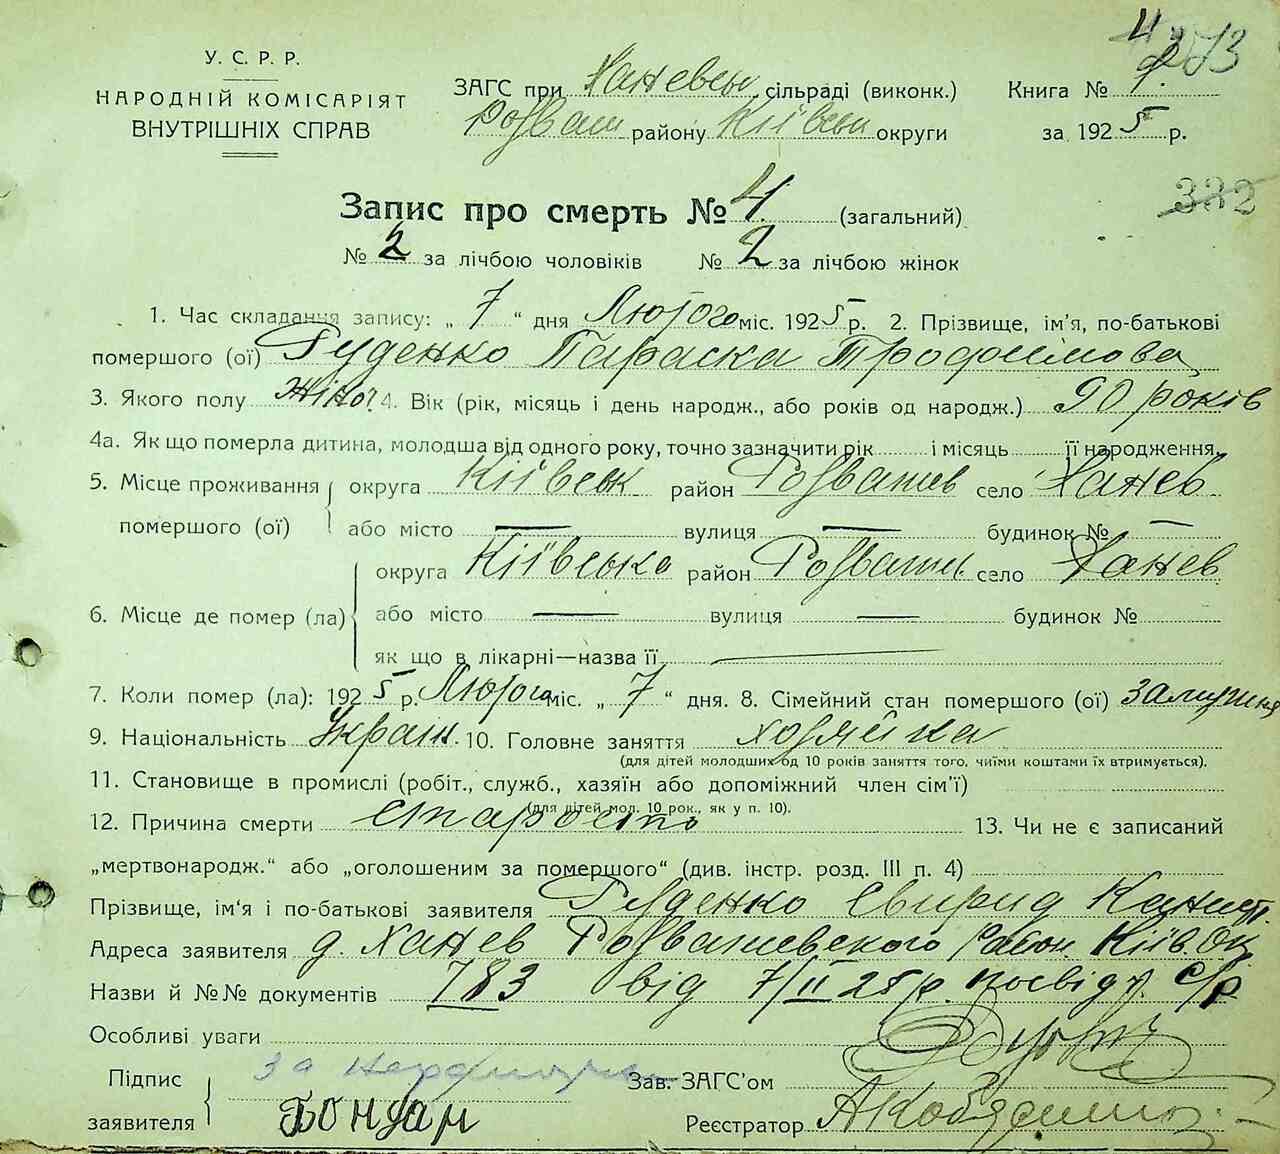 У. С. Р. Р.
НАРОДНІЙ КОМІСАРІЯТ
ВНУТРІШНІХ СПРАВ
ЗАГС при Ханевськ сільраді (виконк.)
Розваж району Київськ округи
Книга №
за 1925 р.
332
Запис про смерть № 4. (загальний)
№ 2 за лічбою чоловіків № 2 за лічбою жінок
1. Час складання запису: „ 7 “ дня Лютого міс. 1925 р. 2. Прізвище, ім'я, по-батькові
помершого (ої) Руденко Параска Трофимова
3. Якого полу жіноч. 4. Вік (рік, місяць і день народж., або років од народж.) 90 років
4а. Як що померла дитина, молодша від одного року, точно зазначити рік і місяць її народження.
5. Місце проживання помершого (ої) округа Київськ район Розважев село Ханев
або місто — вулиця — будинок № —
6. Місце де помер (ла) округа Київська район Розважев село Ханев
або місто — вулиця — будинок №
як що в лікарні—назва її —
7. Коли помер (ла): 1925 р. Лютого міс. „ 7 “ дня. 8. Сімейний стан помершого (ої)
9. Національність Украін. 10. Головне заняття хозяйка
(для дітей молодших од 10 років заняття того, чиїми коштами їх втримується).
11. Становище в промислі (робіт., служб., хазяїн або допоміжний член сім'ї)
(для дітей мол. 10 рок., як у п. 10).
12. Причина смерти старость 13. Чи не є записаний
„мертвонародж.“ або „оголошеним за помершого“ (див. інстр. розд. III п. 4)
Прізвище, ім'я і по-батькові заявителя Руденко Свирид
Адреса заявителя д. Ханев Розважевского район. Київ. Ок
Назви й №№ документів 783 від 7/II 25 р. посвідч. С/Р
Особливі уваги
Підпис заявителя Бондар
Зав. ЗАГС'ом
Реєстратор